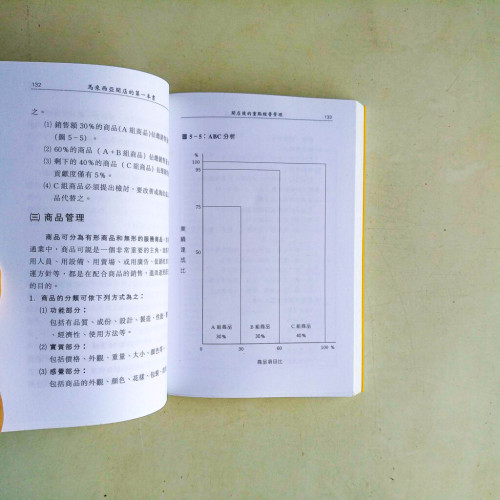 132 馬來西亞開店的第一本書
之。
(1) 銷售額30%的商品(A組商品)佔總銷
(圖5－5)。
(2) 60%的商品(A＋B組商品)佔總銷
(3) 剩下的40%的商品(C組商品)佔總
貢獻度僅有5%。
(4) C組商品必須提出檢討，要改善或
品代替之。
(三) 商品管理
商品可分為有形商品和無形的服務商品
通業中，商品可說是一個非常重要的主角
用人員、用設備、用賣場，或用廣告
運方針等，都是在配合商品的銷售，
的目的。
1. 商品的分類可依下列方式為之：
(1) 功能部分：
包括有品質、成份、設計、製造
、經濟性、使用方法等。
(2) 實質部分：
包括價格、外觀、重量、大小、顏色
(3) 感覺部分：
包括商品的外觀、顏色、花樣
133
圖5－5：ABC分析
%
100
95
75
50
業績達成比
A組商品 B組商品 C組商品
30% 30% 40%
0 30 60 100 %
商品項目比